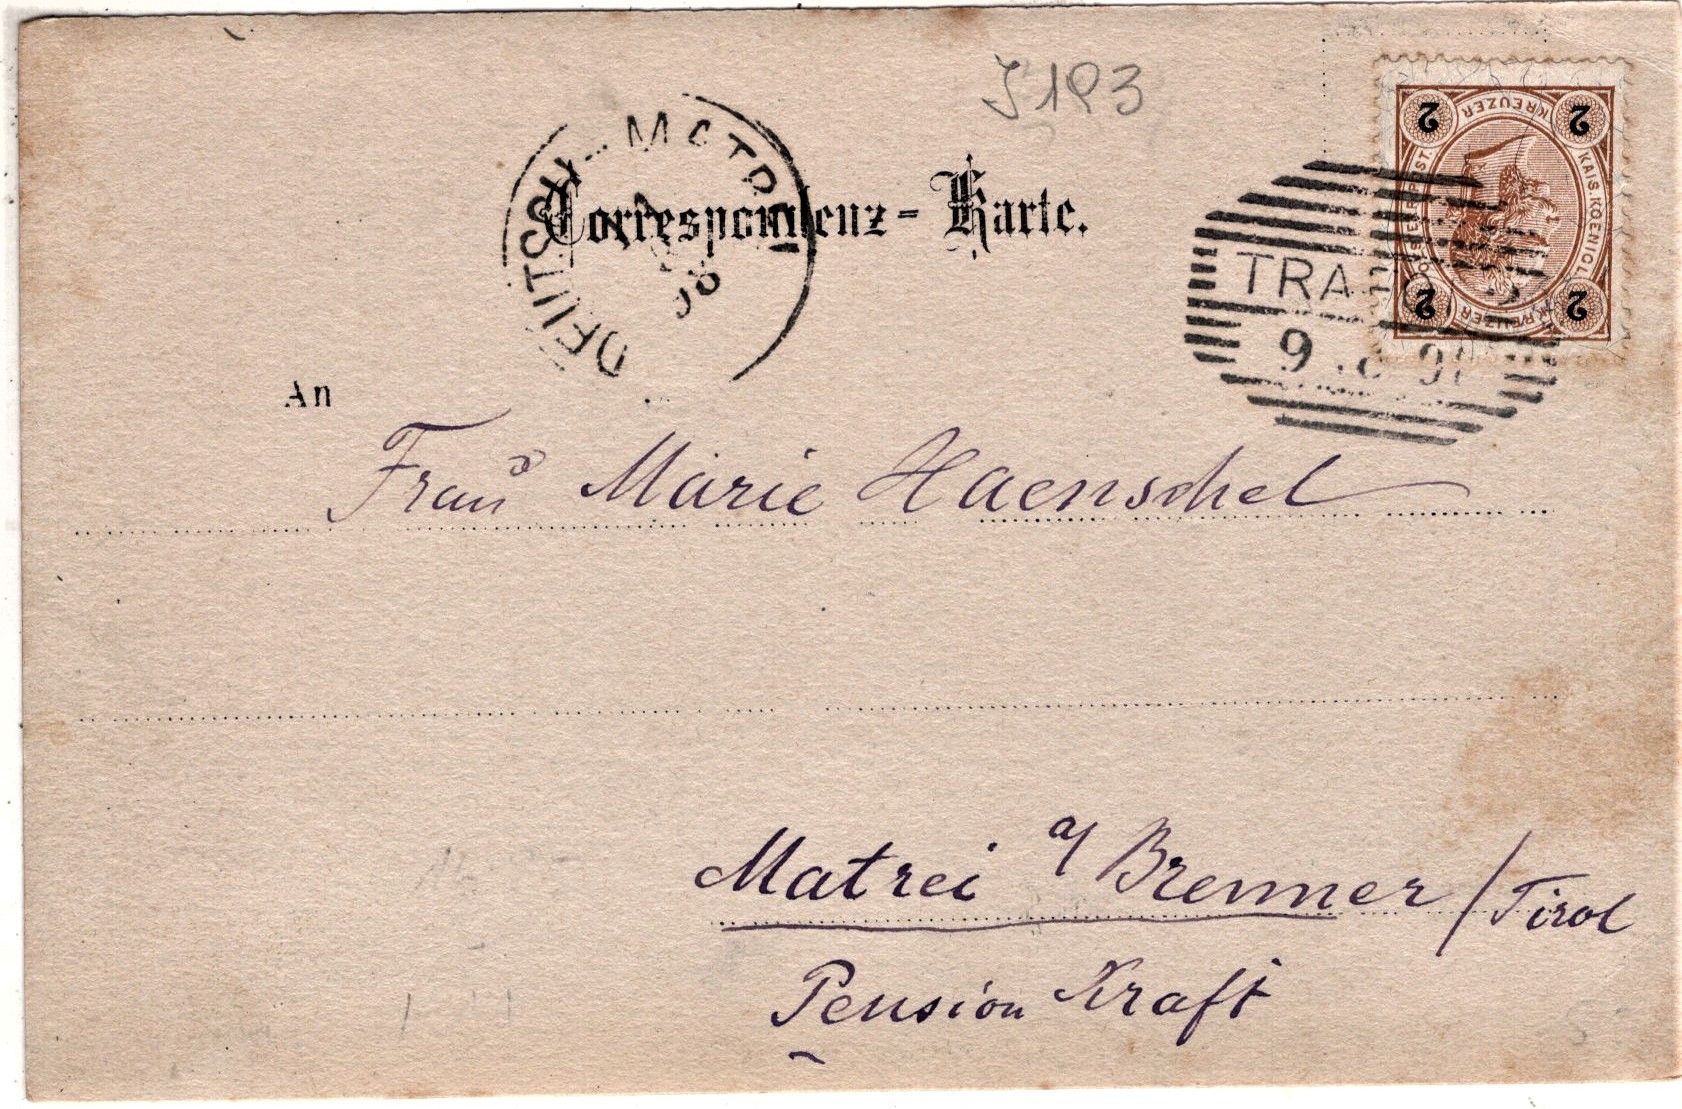 J193
Correspondenz-Karte.
DEUTSCH-MATREI
98
2 KREUZER 2
KAIS. KOENIGL. OESTERR. POST.
2 KREUZER 2
TRA
9 98
An
Frau Marie Haenschel
Matrei a/ Brenner / Tirol
Pension Kraft